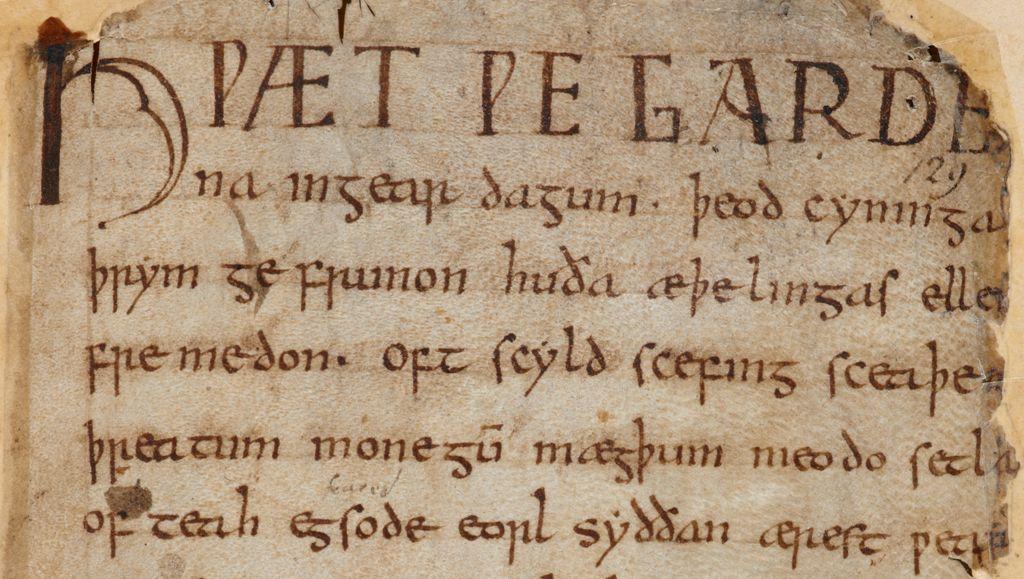 HǷÆT ǷE GARDE
129
na ingear dagum. þeod cyninga
þrym ge frunon huða æþelingas ellen
fre medon. oft scyld scefing sceaþe
þreatum monegū mægþum meodo setla
of teah egsode eorl syððan ærest ƿear